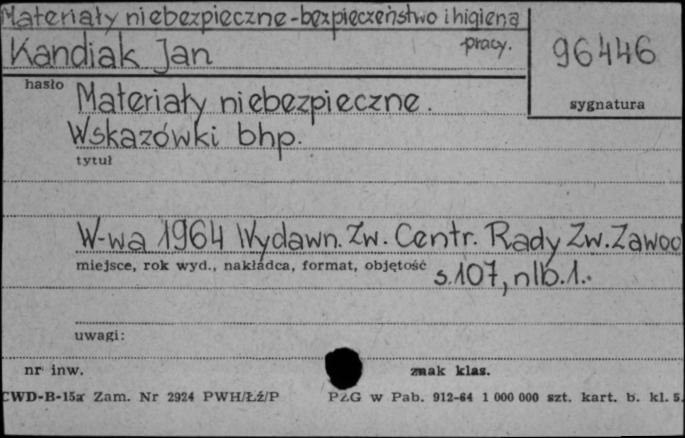 Materiały niebezpieczne-bezpieczeństwo i higiena
pracy.
Kandiak Jan
96446
hasło
sygnatura
Materiały niebezpieczne.
Wskazówki bhp.
tytuł
W-wa 1964 Wydawn. Zw. Centr. Rady Zw. Zawod
miejsce, rok wyd., nakładca, format, objętość
s.107, nlb.1.
uwagi:
nr inw.
znak klas.
CWD-B-15a Zam. Nr 2924 PWH/Łź/P
PZG w Pab. 912-64 1 000 000 szt. kart. b. kl. 5.